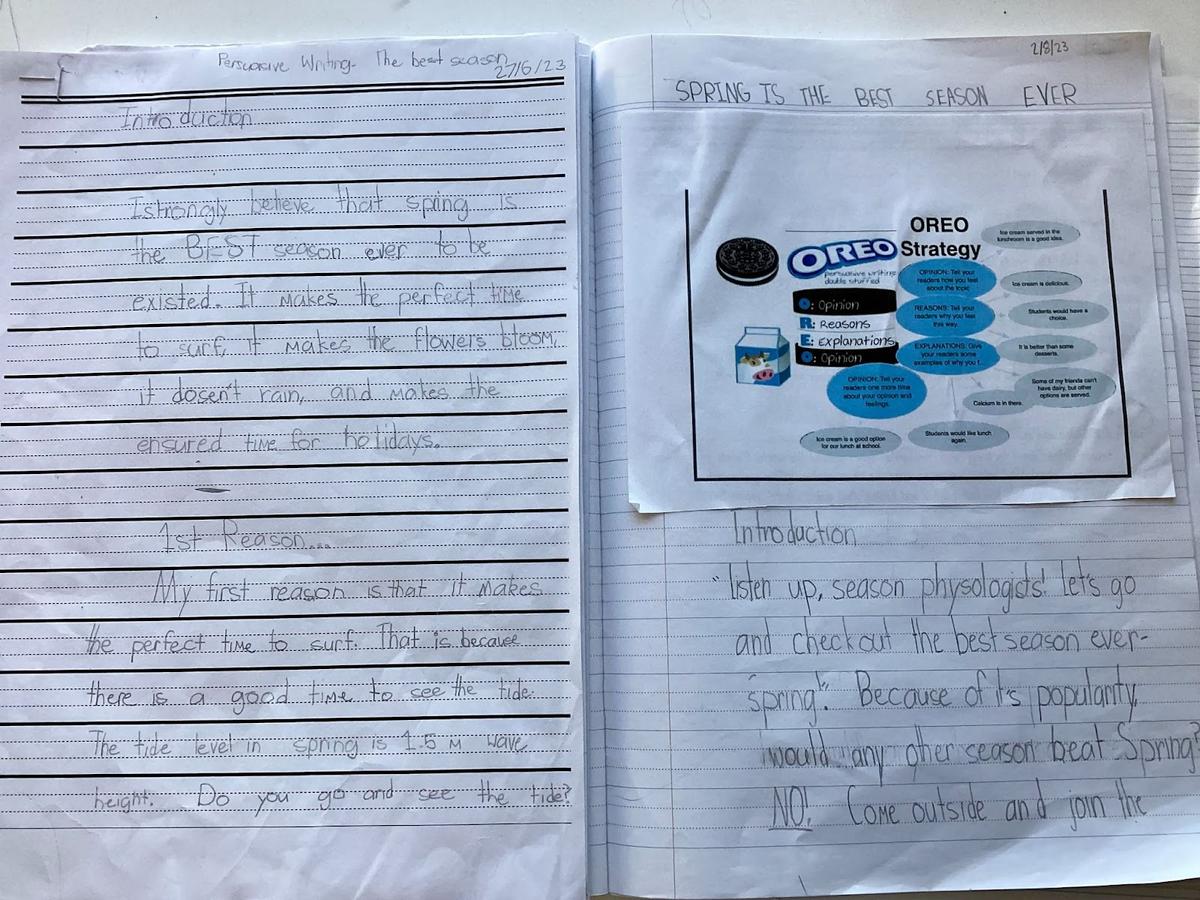 Persuasive Writing- The best season
27/6/23
Introduction
I strongly believe that spring is
the BEST season ever to be
existed. It makes the perfect time
to surf, it makes the flowers bloom,
it dosen't rain, and makes the
ensured time for holidays.
1st Reason...
My first reason is that it makes
the perfect time to surf. That is because
there is a good time to see the tide.
The tide level in spring is 1.5 m wave
height. Do you go and see the tide?
2/8/23
SPRING IS THE BEST SEASON EVER
OREO
persuasive writing
double stuffed
O: Opinion
R: Reasons
E: Explanations
O: Opinion
OREO
Strategy
OPINION: Tell your
readers how you feel
about the topic
REASONS: Tell your
readers why you feel
this way.
EXPLANATIONS: Give
your readers some
examples of why you f...
OPINION: Tell your
readers one more time
about your opinion and
feelings.
Ice cream served in the
lunchroom is a good idea.
Ice cream is delicious.
Students would have a
choice.
It is better than some
desserts.
Some of my friends can't
have dairy, but other
options are served.
Calcium is in there.
Students would like lunch
again.
Ice cream is a good option
for our lunch at school.
Introduction
"listen up, season physologists! Let's go
and check out the best season ever-
spring!". Because of it's popularity,
would any other season beat Spring?
NO! Come outside and join the